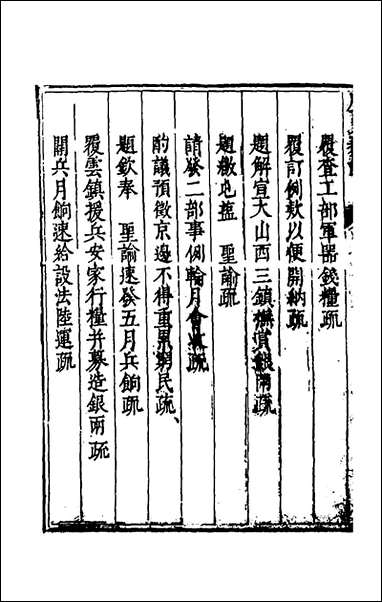 覆查工部軍器錢糧疏
覆訂例款以便開納疏
題解宣大山西三鎮撫賞銀兩疏
題繳屯鹽 聖諭疏
請發二部事例輪月會收疏
酌議預徵京邊不得重累窮民疏
題欽奉 聖諭速發五月兵餉疏
覆雲鎮援兵安家行糧并募造銀兩疏
關兵月餉速給設法陸運疏